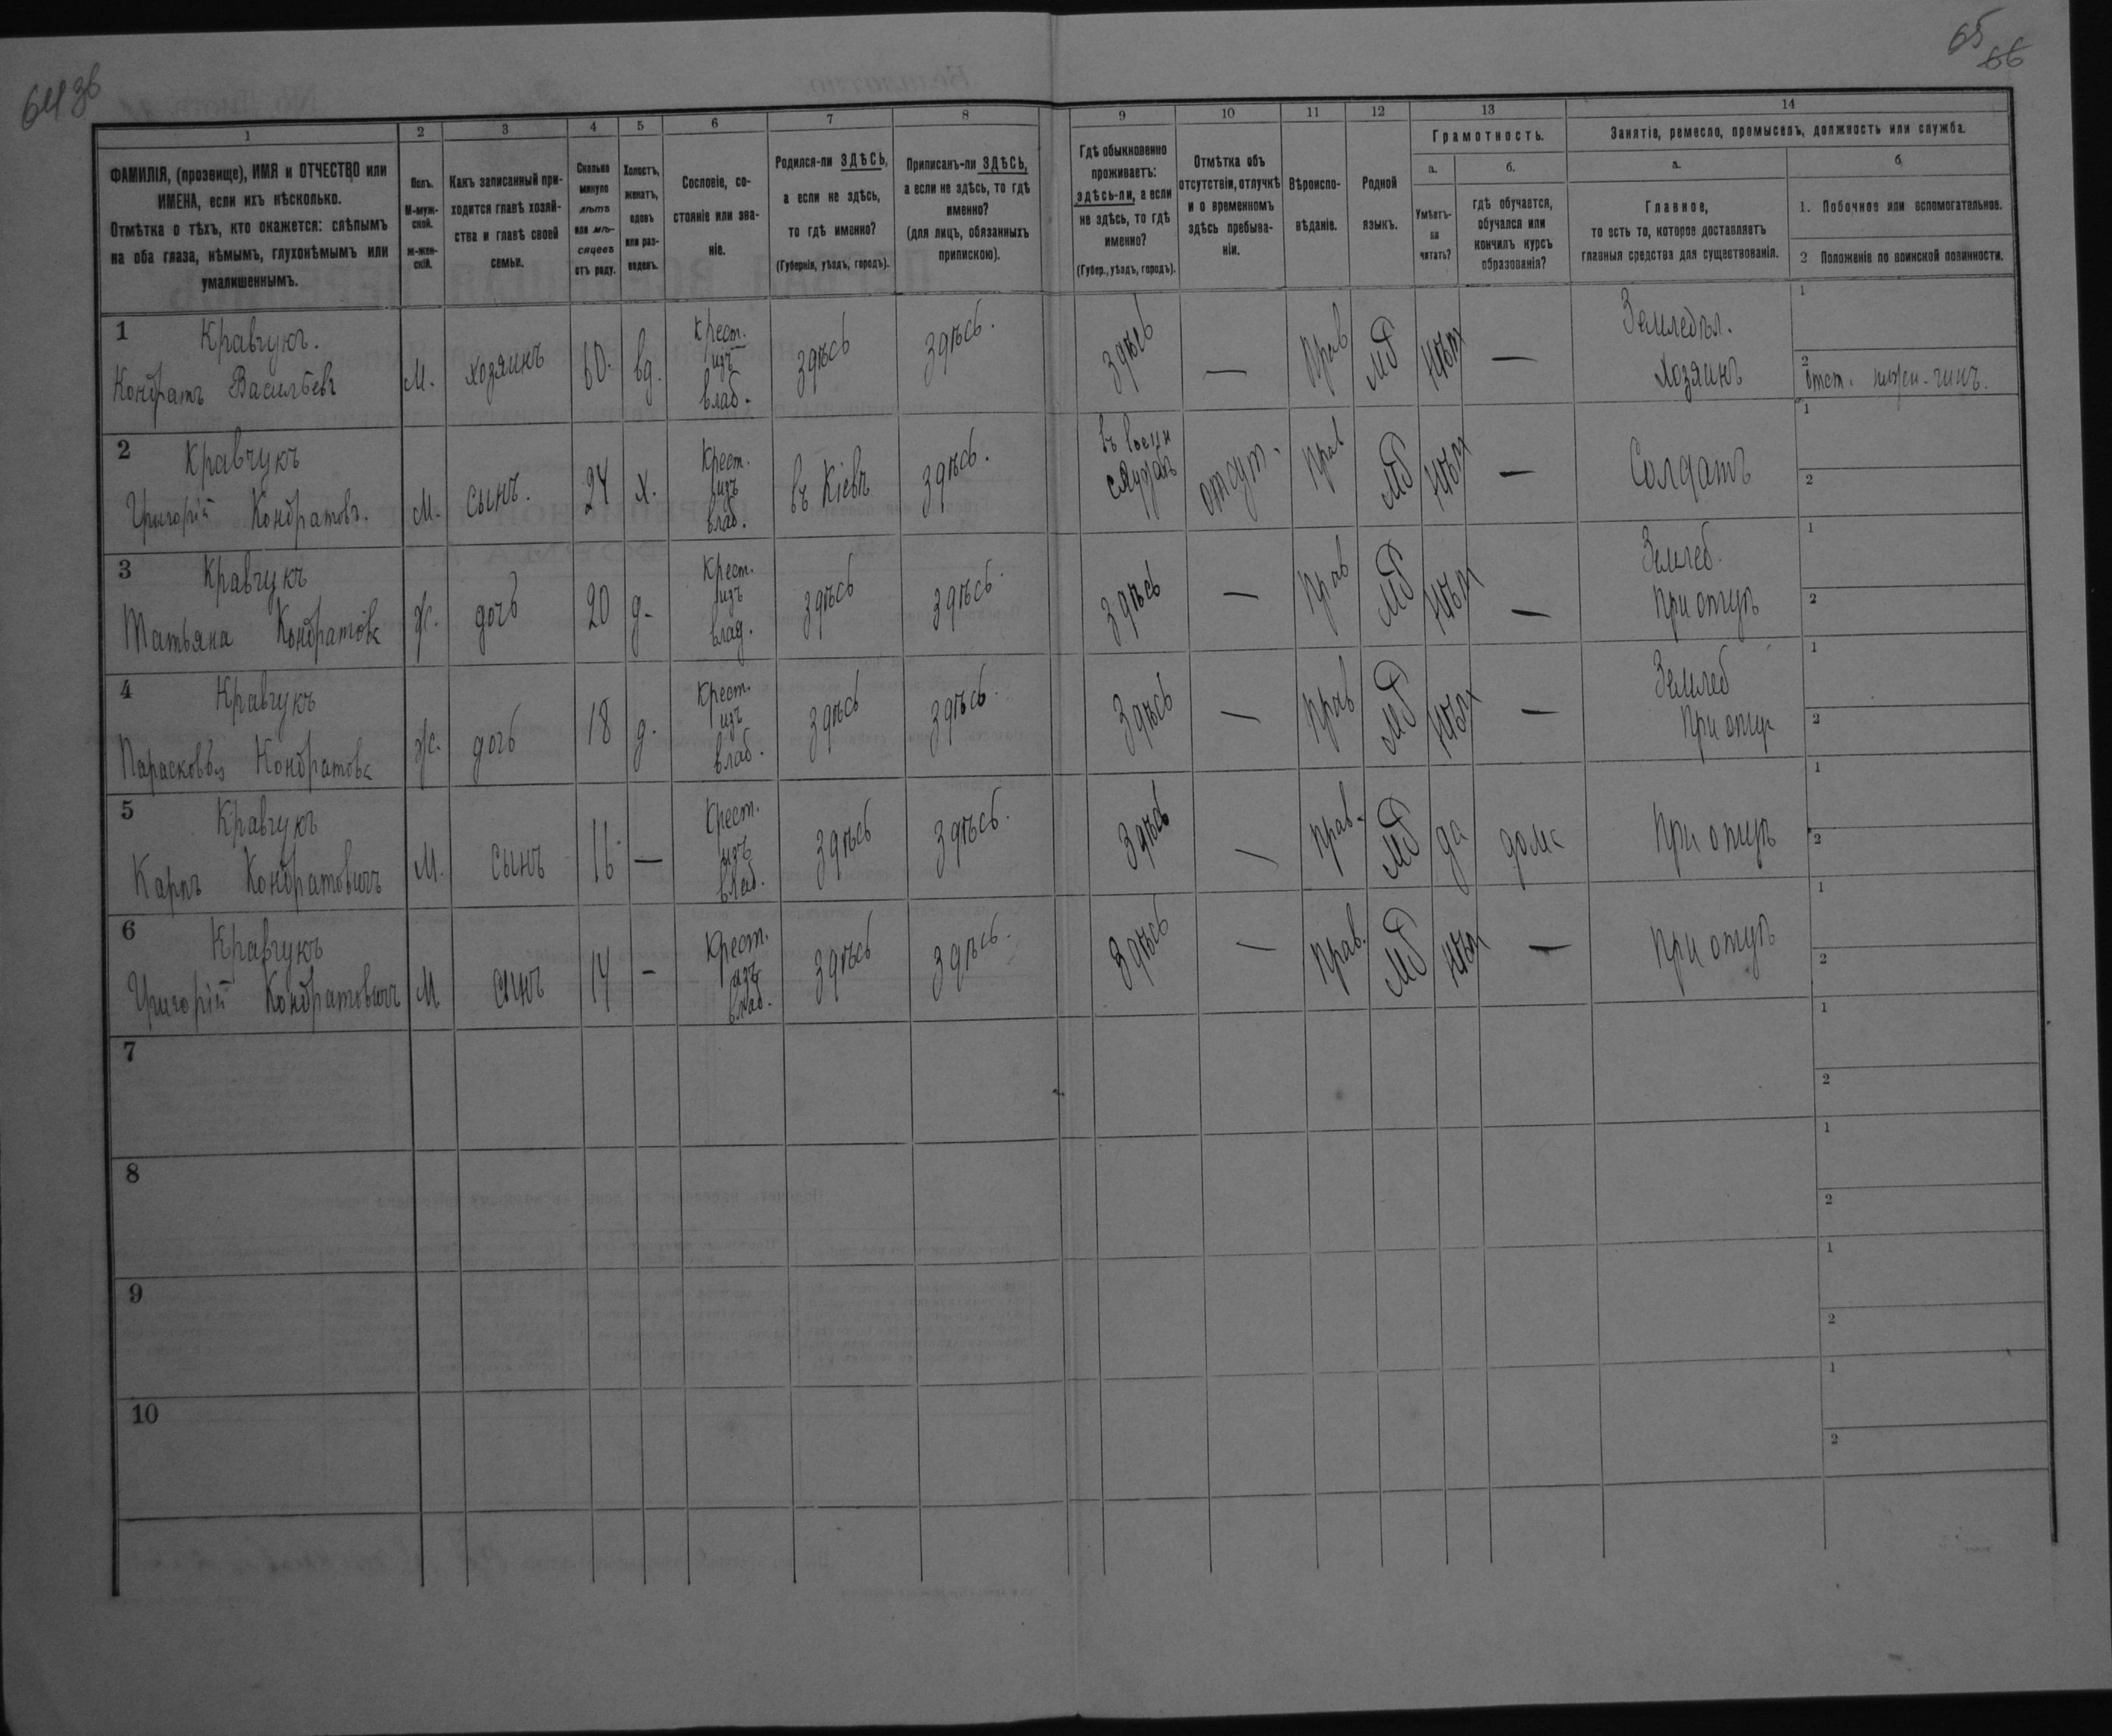 643б
65
66
1
2
3
4
5
6
7
8
9
10
11
12
13
14
ФАМИЛІЯ, (прозвище), ИМЯ и ОТЧЕСТВО или
ИМЕНА, если ихъ нѣсколько.
Отмѣтка о тѣхъ, кто окажется: слѣпымъ
на оба глаза, нѣмымъ, глухонѣмымъ или
умалишеннымъ.
Полъ.
М-муж-
ской.
ж-жен-
скій.
Какъ записанный при-
ходится главѣ хозяй-
ства и главѣ своей
семьи.
Сколько
минуло
лѣтъ
или мѣ-
сяцевъ
отъ роду.
Холостъ,
женатъ,
вдовъ
или раз-
веденъ.
Сословіе, со-
стояніе или зва-
ніе.
Родился-ли ЗДѢСЬ,
а если не здѣсь,
то гдѣ именно?
(Губернія, уѣздъ, городъ).
Приписанъ-ли ЗДѢСЬ,
а если не здѣсь, то гдѣ
именно?
(для лицъ, обязанныхъ
припискою).
Гдѣ обыкновенно
проживаетъ:
здѣсь-ли, а если
не здѣсь, то гдѣ
именно?
(Губер., уѣздъ, городъ).
Отмѣтка объ
отсутствіи, отлучкѣ
и о временномъ
здѣсь пребыва-
ніи.
Вѣроиспо-
вѣданіе.
Родной
языкъ.
Грамотность.
а.
Умѣетъ-
ли
читать?
б.
гдѣ обучается,
обучался или
кончилъ курсъ
образованія?
Занятіе, ремесло, промыселъ, должность или служба.
а.
Главное,
то есть то, которое доставляетъ
главныя средства для существованія.
б.
1. Побочное или вспомогательное.
2 Положеніе по воинской повинности.
1
Кравчукъ.
Кондратъ Васильевъ
М.
хозяинъ
60.
вд.
Крест.
изъ
влад.
здѣсь
здѣсь.
здѣсь
—
прав
мд
нѣтъ
—
Земледѣл.
Хозяинъ
1
2
отст. нижн. чинъ.
2
Кравчукъ
Григорій Кондратовъ.
м.
сынъ.
24
х.
Крест.
изъ
влад.
въ Кіевѣ
здѣсь.
въ воен
службѣ
отсут.
прав
мд
нѣтъ
—
Солдатъ
1
2
3
Кравчукъ
Татьяна Кондратова
ж.
дочь
20
д.
Крест.
изъ
влад.
здѣсь
здѣсь.
здѣсь
—
прав
мд
нѣтъ
—
Землед.
при отцѣ
1
2
4
Кравчукъ
Парасковья Кондратова
ж.
дочь
18
д.
Крест.
изъ
влад.
здѣсь
здѣсь.
здѣсь
—
прав
мд
нѣтъ
—
Землед
при отцѣ
1
2
5
Кравчукъ
Карпъ Кондратовичъ
М.
сынъ
16
—
Крест.
изъ
влад.
здѣсь
здѣсь.
здѣсь
—
прав.
мд
да
дома
при отцѣ
1
2
6
Кравчукъ
Григорій Кондратовичъ
М
сынъ
14
-
Крест.
изъ
влад.
здѣсь
здѣсь.
здѣсь
—
прав.
мд
нѣтъ
—
при отцѣ
1
2
7
1
2
8
1
2
9
1
2
10
1
2